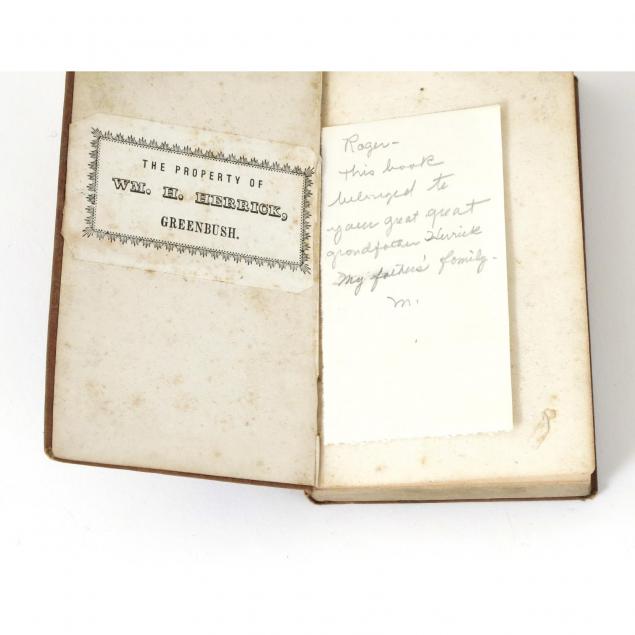 THE PROPERTY OF
WM. H. HERRICK,
GREENBUSH.
Roger-
This book
belonged to
your great great
grandfather Herrick
My fathers' family-
M.